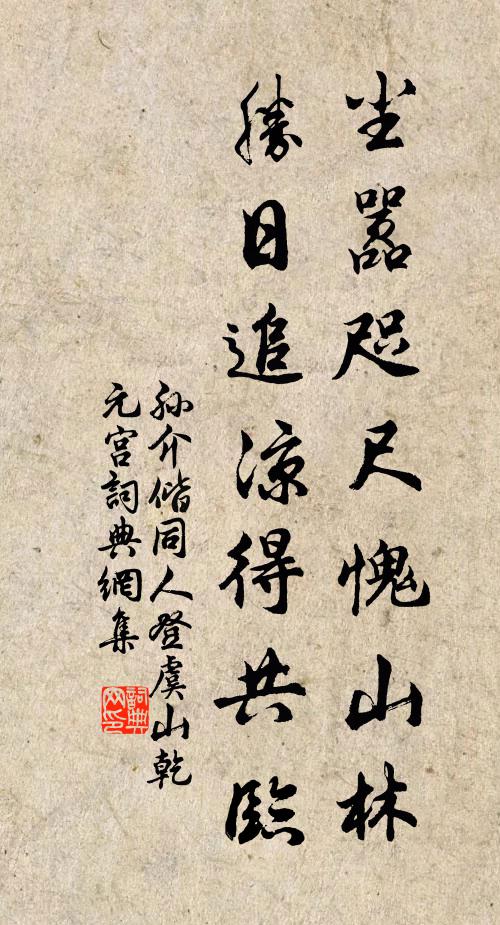 尘嚣咫尺愧山林
勝日追凉得共臨
孙介偕同人登虞山乾
元宫詞典網集
詞典网印